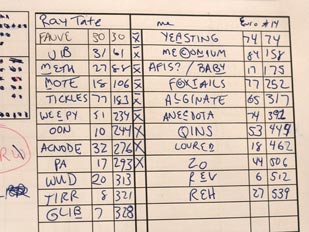 Ray Tate me Euro #14
FAUVE 30 30 YEASTING 74 74
JIB 31 61 MECONIUM 84 158
METH 27 88 APIS? / BABY 17 175
MOTE 18 106 FOXTAILS 77 252
TICKLES 77 183 ALGINATE 65 317
WEEPY 51 234 ANECDOTA 74 392
OON 10 244 QINS 53 445
ACNODE 32 276 LOURED 18 462
PA 17 293 ZO 44 506
WUD 20 313 REV 6 512
TIRR 8 321 REH 27 539
GLIB 7 328